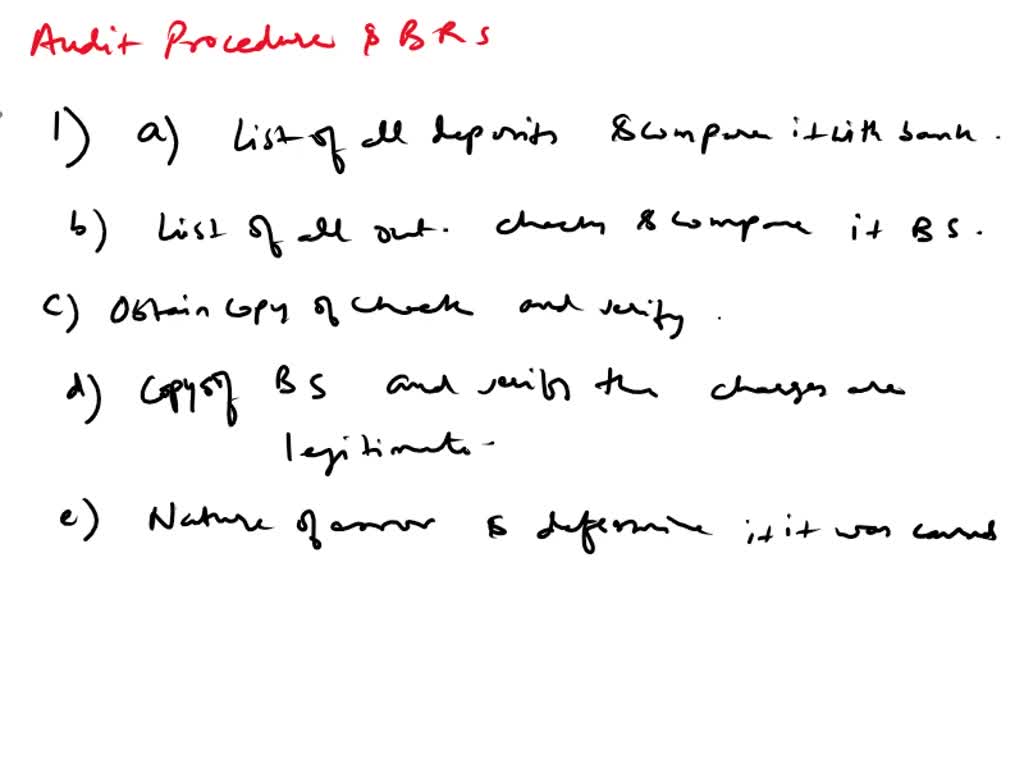 Audit Procedure & BRS
1) a) List of all deposits & compare it with bank.
b) List of all out. checks & compare it BS.
c) Obtain copy of check and verify.
d) Copy of BS and verify the charges are
legitimate-
e) Nature of error & determine if it was caused